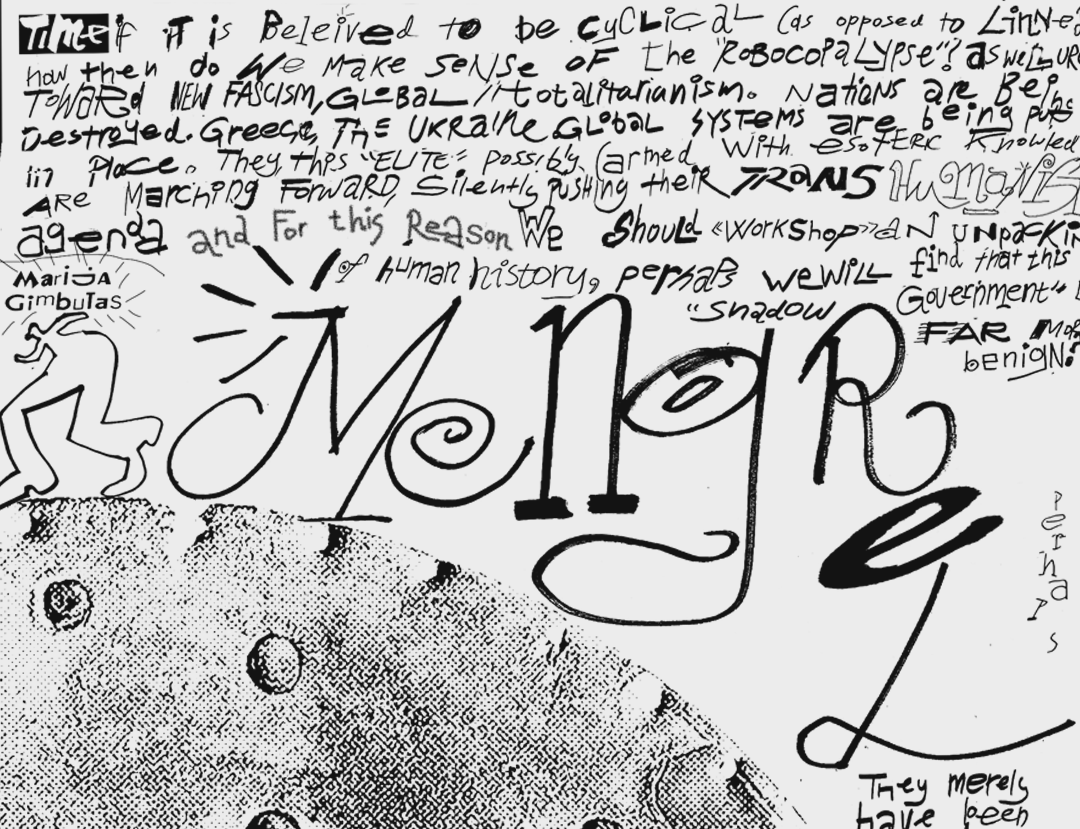 Time if iT is Beleived to be cyCLicaL (as opposed to
how then do We make seNse oF the "RoBocopaLypse"? as weLL
TOWARd NEW FASCISM, GLoBaL //totalitarianism. Nations are Being
Destroyed. Greece, ThE UKRaINe. GLobaL SYSTEMS are being put
iin Place. They, this "ELITE" possibly (armed With esoTERic
ARe Marching ForwaRD, Silently pUSHing theiR TRANS HuManis
agenda and For this Reason We ShouLd «WorkShop» aN uNpacKin
of human history, perhaps weWiLL find that this
"Shadow Government"
FAR
benign?
MariJA
GimbuTas
MeNgReL
Perhaps
They merely
have been